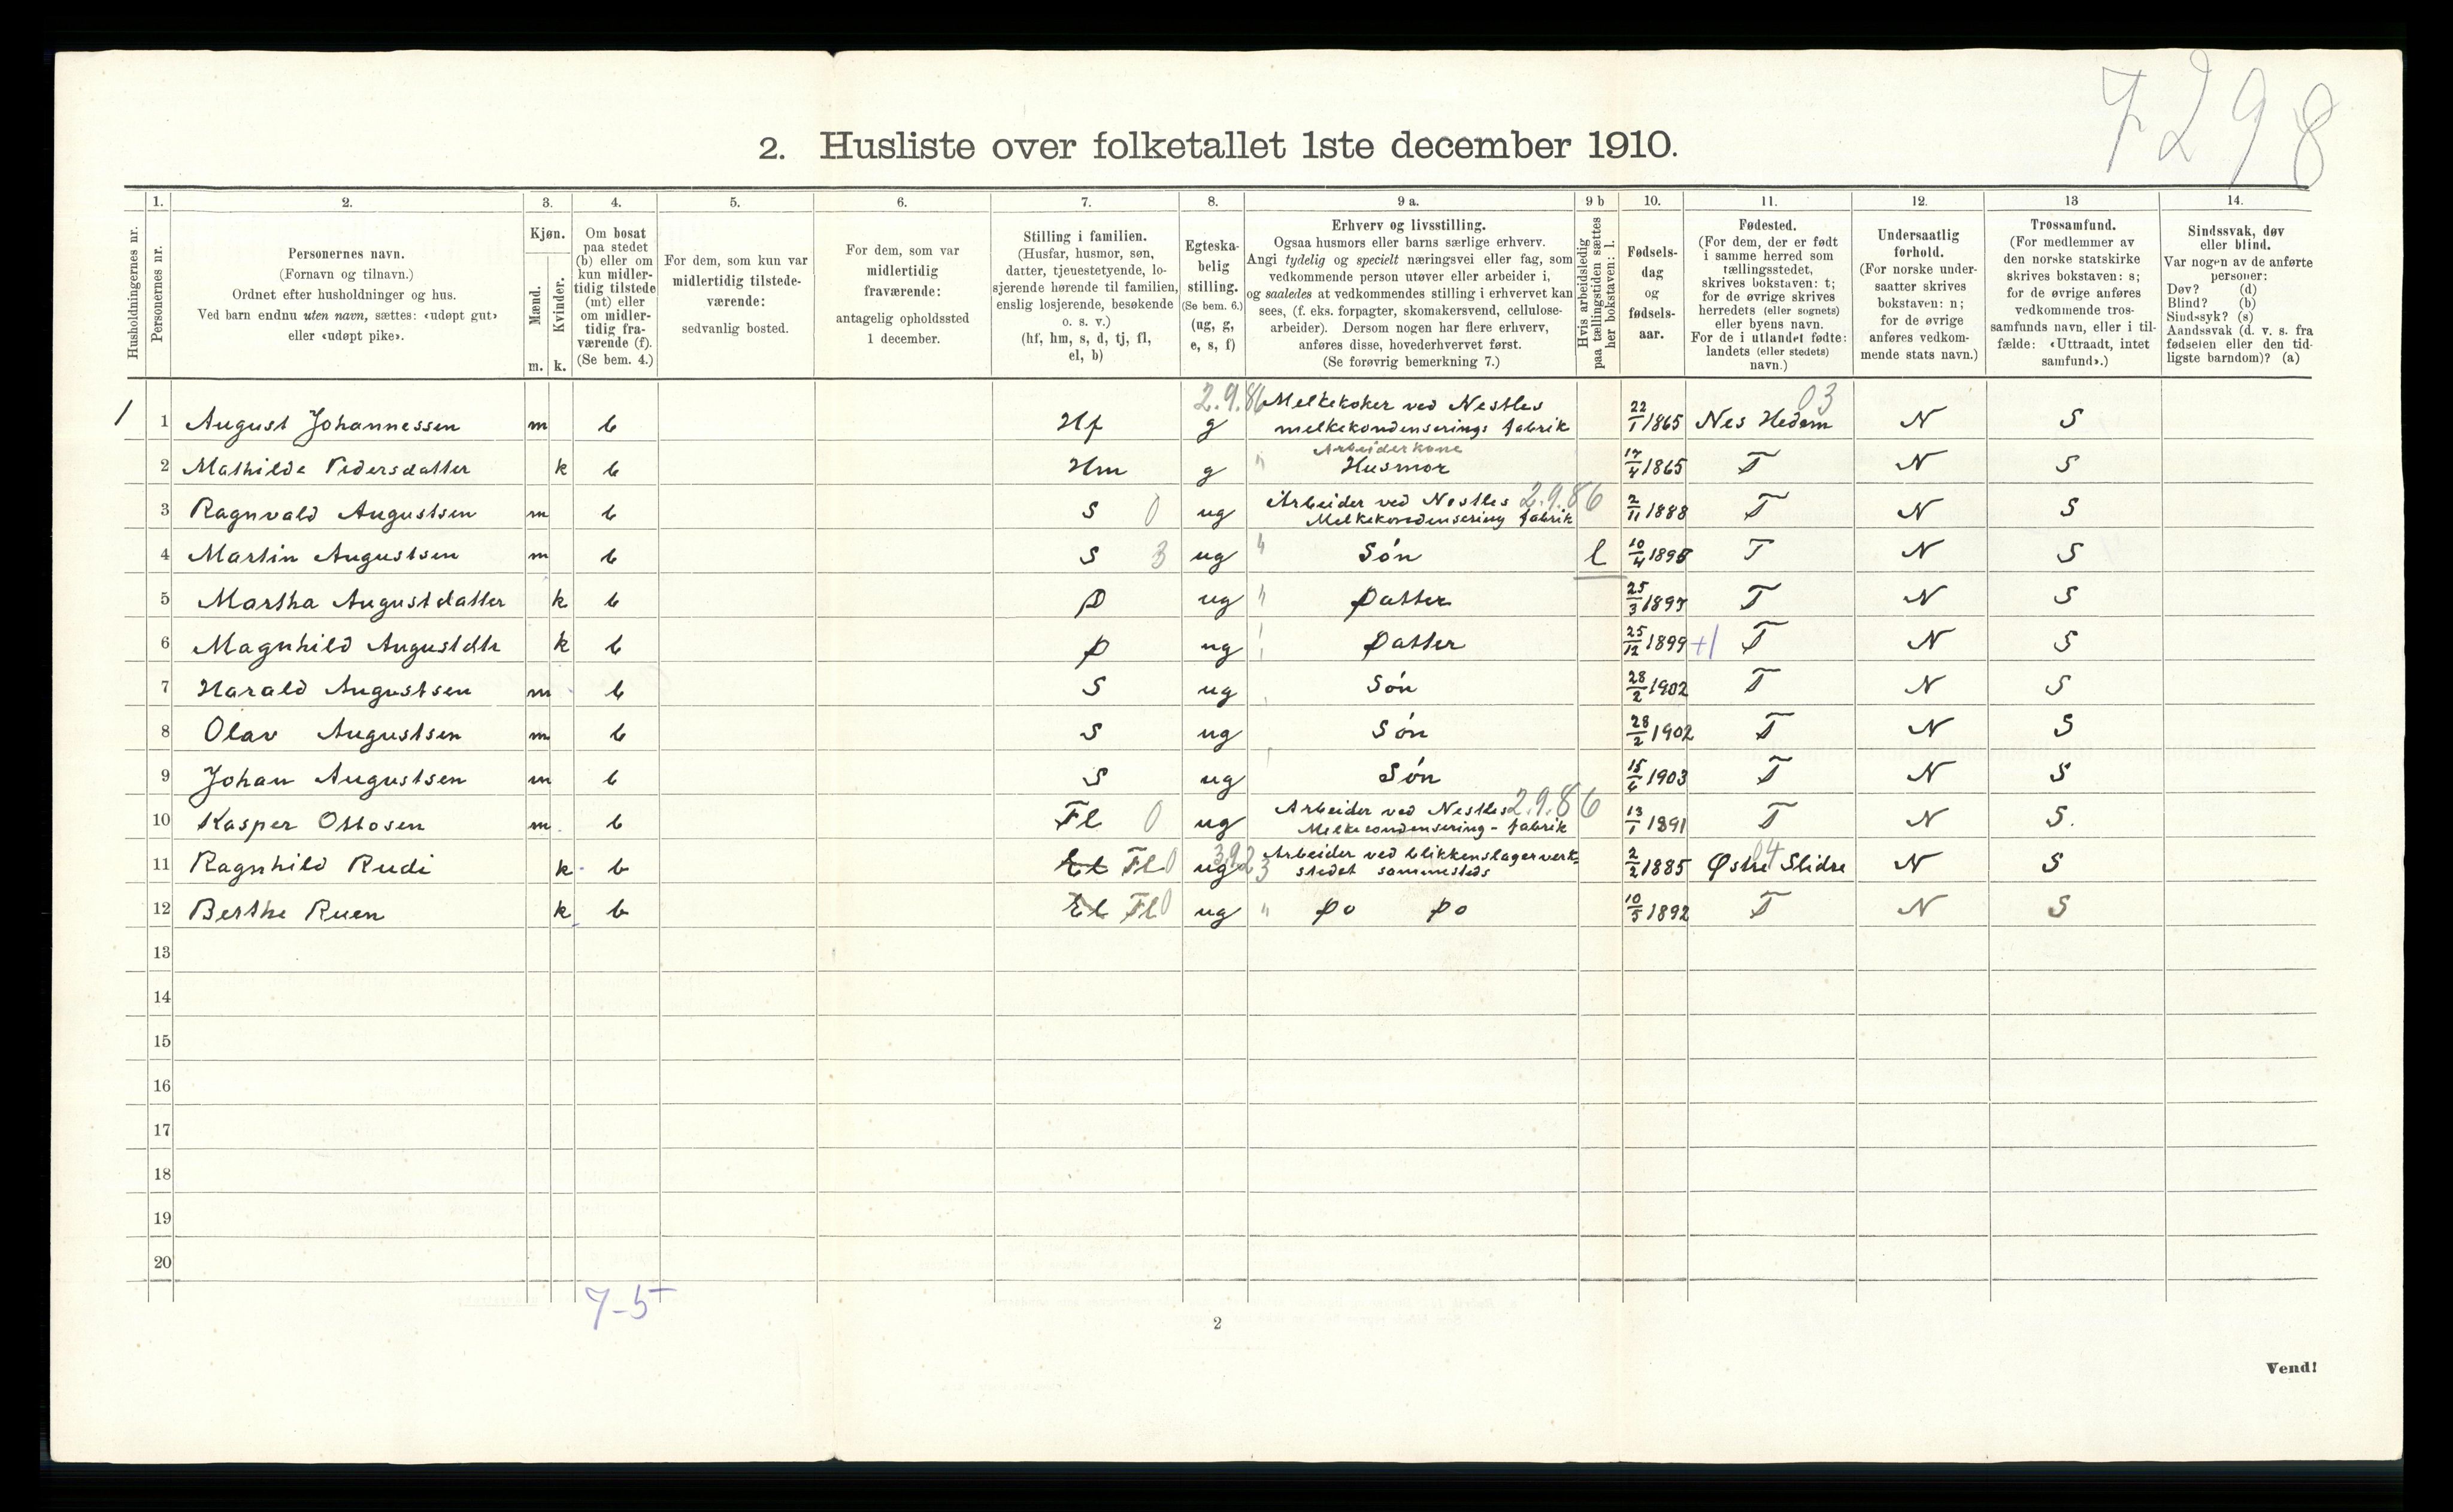 7298
2. Husliste over folketallet 1ste december 1910.
1. 2. 3. 4. 5. 6. 7. 8. 9 a. 9 b 10. 11. 12. 13 14.
Husholdningernes nr.
Personernes nr.
Personernes navn.
(Fornavn og tilnavn.)
Ordnet efter husholdninger og hus.
Ved barn endnu uten navn, sættes: «udøpt gut»
eller «udøpt pike».
Kjøn.
Mænd.
Kvinder.
m. k.
Om bosat
paa stedet
(b) eller om
kun midler-
tidig tilstede
(mt) eller
om midler-
tidig fra-
værende (f).
(Se bem. 4.)
For dem, som kun var
midlertidig tilstede-
værende:
sedvanlig bosted.
For dem, som var
midlertidig
fraværende:
antagelig opholdssted
1 december.
Stilling i familien.
(Husfar, husmor, søn,
datter, tjenestetyende, lo-
sjerende hørende til familien,
enslig losjerende, besøkende
o. s. v.)
(hf, hm, s, d, tj, fl,
el, b)
Egteska-
belig
stilling.
(Se bem. 6.)
(ug, g,
e, s, f)
Erhverv og livsstilling.
Ogsaa husmors eller barns særlige erhverv.
Angi tydelig og specielt næringsvei eller fag, som
vedkommende person utøver eller arbeider i,
og saaledes at vedkommendes stilling i erhvervet kan
sees, (f. eks. forpagter, skomakersvend, cellulose-
arbeider). Dersom nogen har flere erhverv,
anføres disse, hovederhvervet først.
(Se forøvrig bemerkning 7.)
Hvis arbeidsledig
paa tællingstiden sættes
her bokstaven: l.
Fødsels-
dag
og
fødsels-
aar.
Fødested.
(For dem, der er født
i samme herred som
tællingsstedet,
skrives bokstaven: t;
for de øvrige skrives
herredets (eller sognets)
eller byens navn.
For de i utlandet fødte:
landets (eller stedets)
navn.)
Undersaatlig
forhold.
(For norske under-
saatter skrives
bokstaven: n;
for de øvrige
anføres vedkom-
mende stats navn.)
Trossamfund.
(For medlemmer av
den norske statskirke
skrives bokstaven: s;
for de øvrige anføres
vedkommende tros-
samfunds navn, eller i til-
fælde: «Uttraadt, intet
samfund».)
Sindssvak, døv
eller blind.
Var nogen av de anførte
personer:
Døv? (d)
Blind? (b)
Sindssyk? (s)
Aandssvak (d. v. s. fra
fødselen eller den tid-
ligste barndom)? (a)
2.9.86 Melkekoker ved Nestles 03
1 1 August Johannessen m b Hf g melkekondenserings fabrik 22/1 1865 Nes Hedem N S
Arbeiderkone
2 Mathilde Pedersdatter k b Hm g " Husmor 17/4 1865 T N S
Arbeider ved Nestles 2.9.86
3 Ragnvald Augustsen m b S 0 ug Melkekondensering fabrik 2/11 1888 T N S
4 Martin Augustsen m b S 3 ug " Søn l 10/4 1895 T N S
5 Martha Augustdatter k b D ug " Datter 25/3 1897 T N S
6 Magnhild Augustdtr k b D ug " Datter 25/12 1899 +1 T N S
7 Harald Augustsen m b S ug Søn 28/2 1902 T N S
8 Olav Augustsen m b S ug Søn 28/2 1902 T N S
9 Johan Augustsen m b S ug Søn 15/6 1903 T N S
Arbeider ved Nestles 2.9.86
10 Kasper Ottosen m. b Fl 0 ug Melkecondensering - fabrik 13/1 1891 T N S.
Arbeider ved blikkenslagerverk-
11 Ragnhild Rudi k b El Fl 0 ug stedet sammesteds 2/2 1885 Østre Slidre 04 N S
12 Berthe Ruen k b El Fl 0 ug " Do Do 10/5 1892 T N S
13
14
15
16
17
18
19
20
7-5
2
Vend!